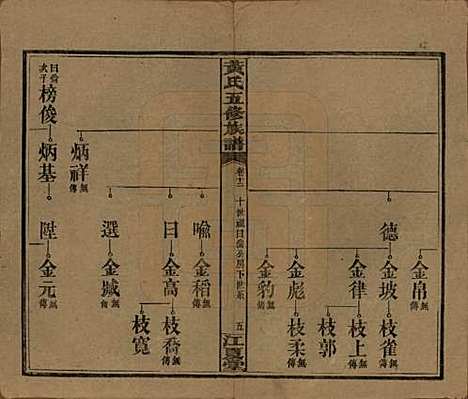 德
金帛 無傳
金坡
枝雀 無傳
金律
枝上 無傳
枝郭
金彪
枝柔 無傳
金豹 無傳
黃氏五修族譜
卷十二
五
江夏堂
喻
金稻 無傳
曰
金高
枝喬 無傳
枝寬
選
金城
炳祥 無傳
次子 榜俊
炳基
陞
金元 無傳